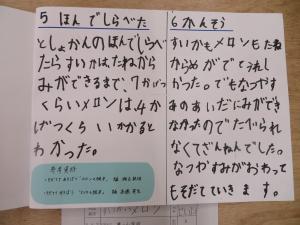 5 ほんでしらべた
としょかんのほんでしらべ
たらすいかはたねから
みができるまで、7かげつ
くらいメロンは4か
げつくらいかかると
わかった。
6 かんそう
すいかもメロンもたね
からめがでてうれし
かった。でもなつやす
みのあいだにみができ
なかったのでたべられ
なくてざんねんでした。
なつやすみがおわって
もそだてていきます。